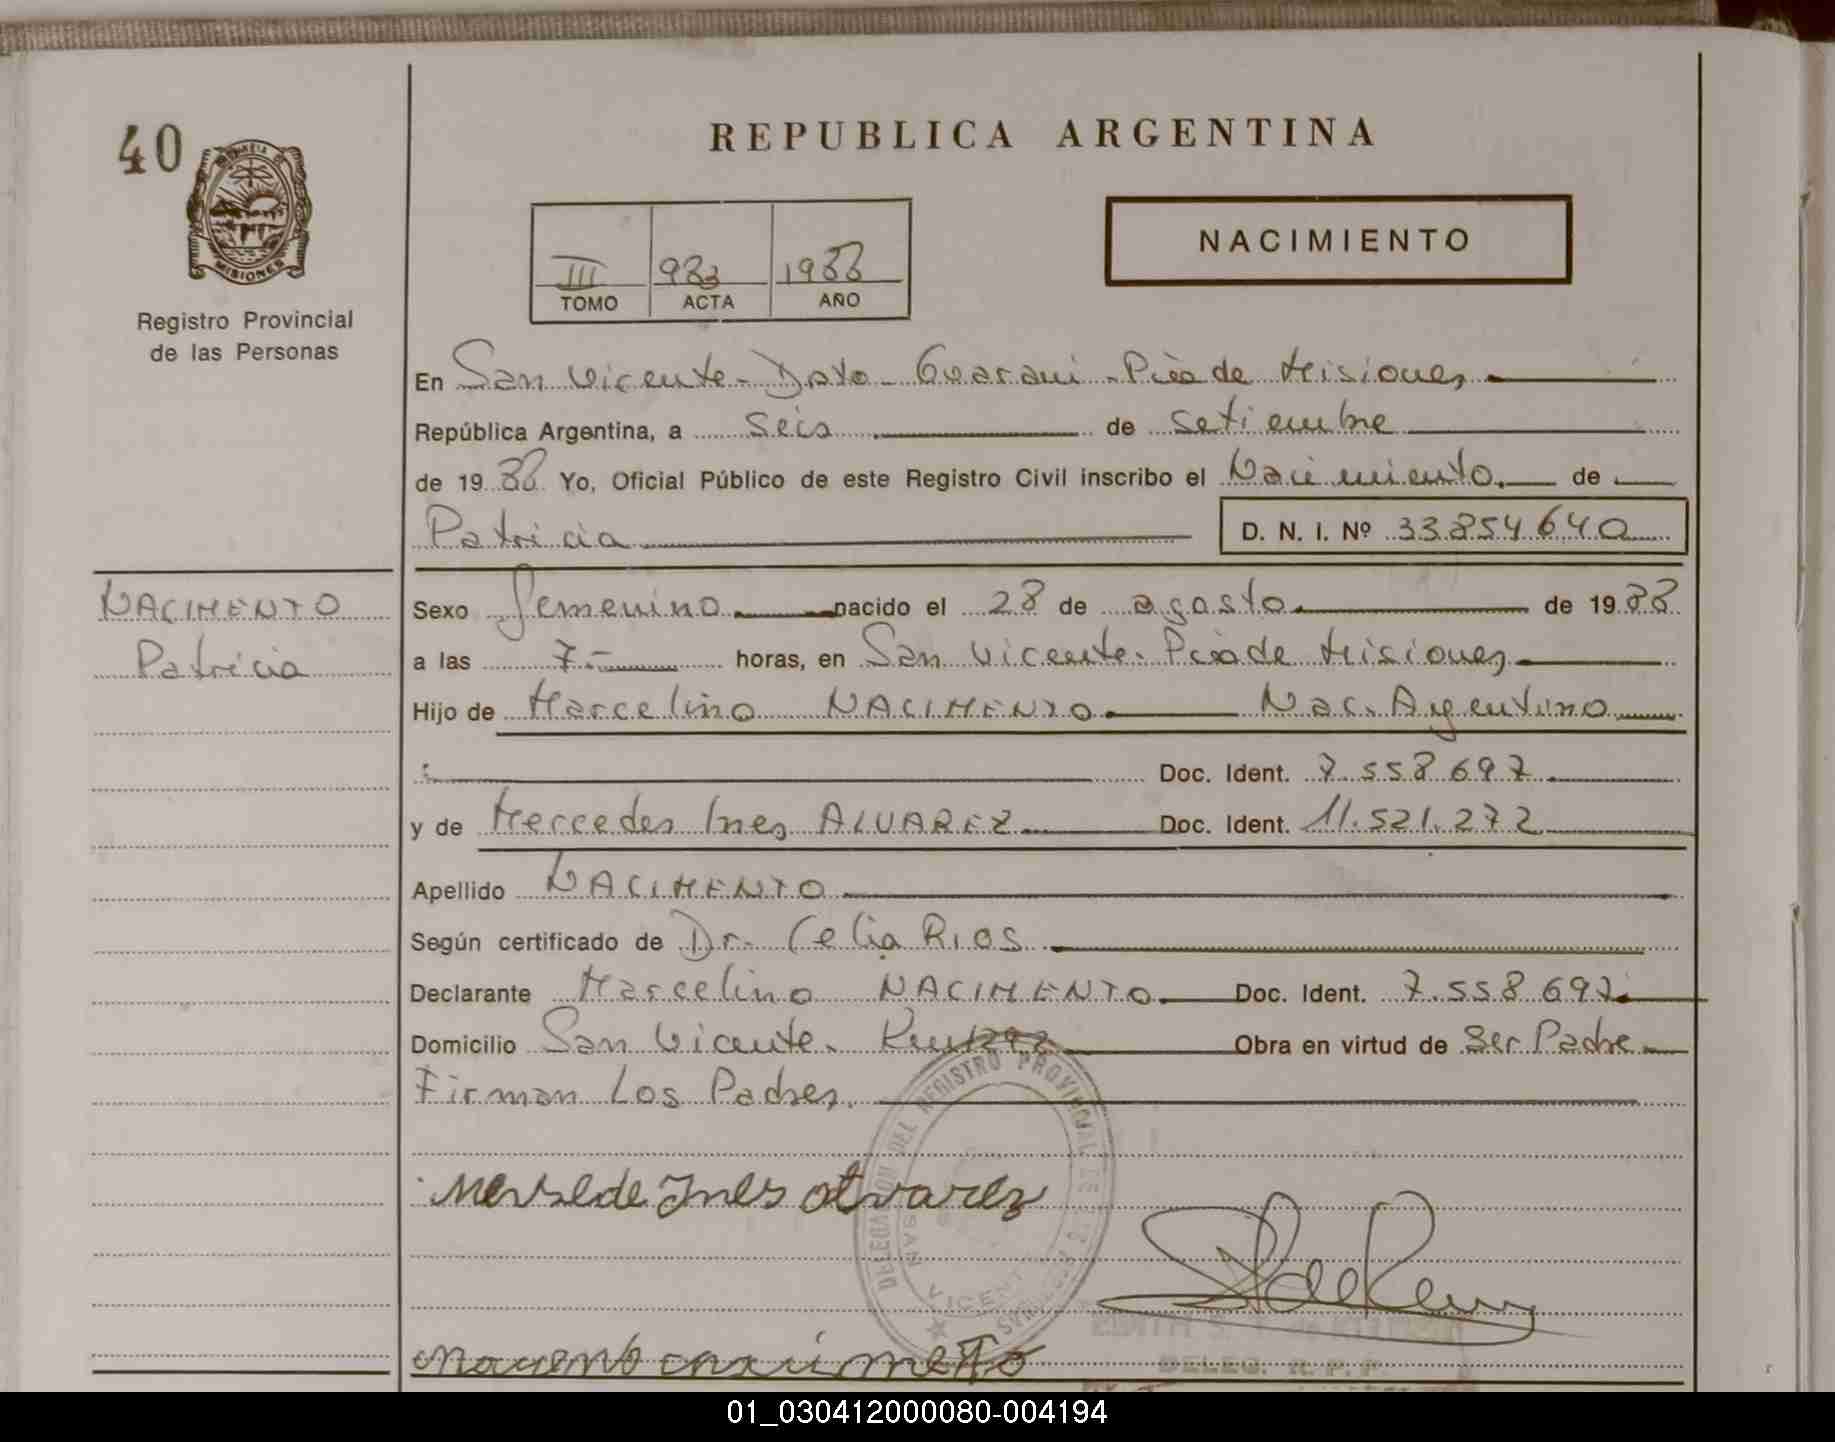 40
PROVINCIA DE
MISIONES
Registro Provincial
de las Personas
NACIMENTO
Patricia
REPUBLICA ARGENTINA
NACIMIENTO
III 983 1988
TOMO ACTA AÑO
En San Vicente - Dpto - Guarani - Pcia de Misiones
República Argentina, a seis de setiembre
de 1988 Yo, Oficial Público de este Registro Civil inscribo el Nacimiento de
Patricia D. N. I. Nº 33854640
Sexo femenino nacido el 28 de agosto de 1988
a las 7.- horas, en San Vicente. Pcia de Misiones
Hijo de Marcelino NACIMENTO Nac. Argentino
Doc. Ident. 7.558.697
y de Mercedes Ines ALVAREZ Doc. Ident. 11.521.272
Apellido NACIMENTO
Según certificado de Dr. Celia RIOS
Declarante Marcelino NACIMENTO Doc. Ident. 7.558.697
Domicilio San Vicente. Km 1272 Obra en virtud de Ser Padre
Firman Los Padres.
DELEGACION DEL REGISTRO PROVINCIAL DE LAS PERSONAS
Mersede Ines alvarez
DELEG. R. P. P.
01_030412000080-004194